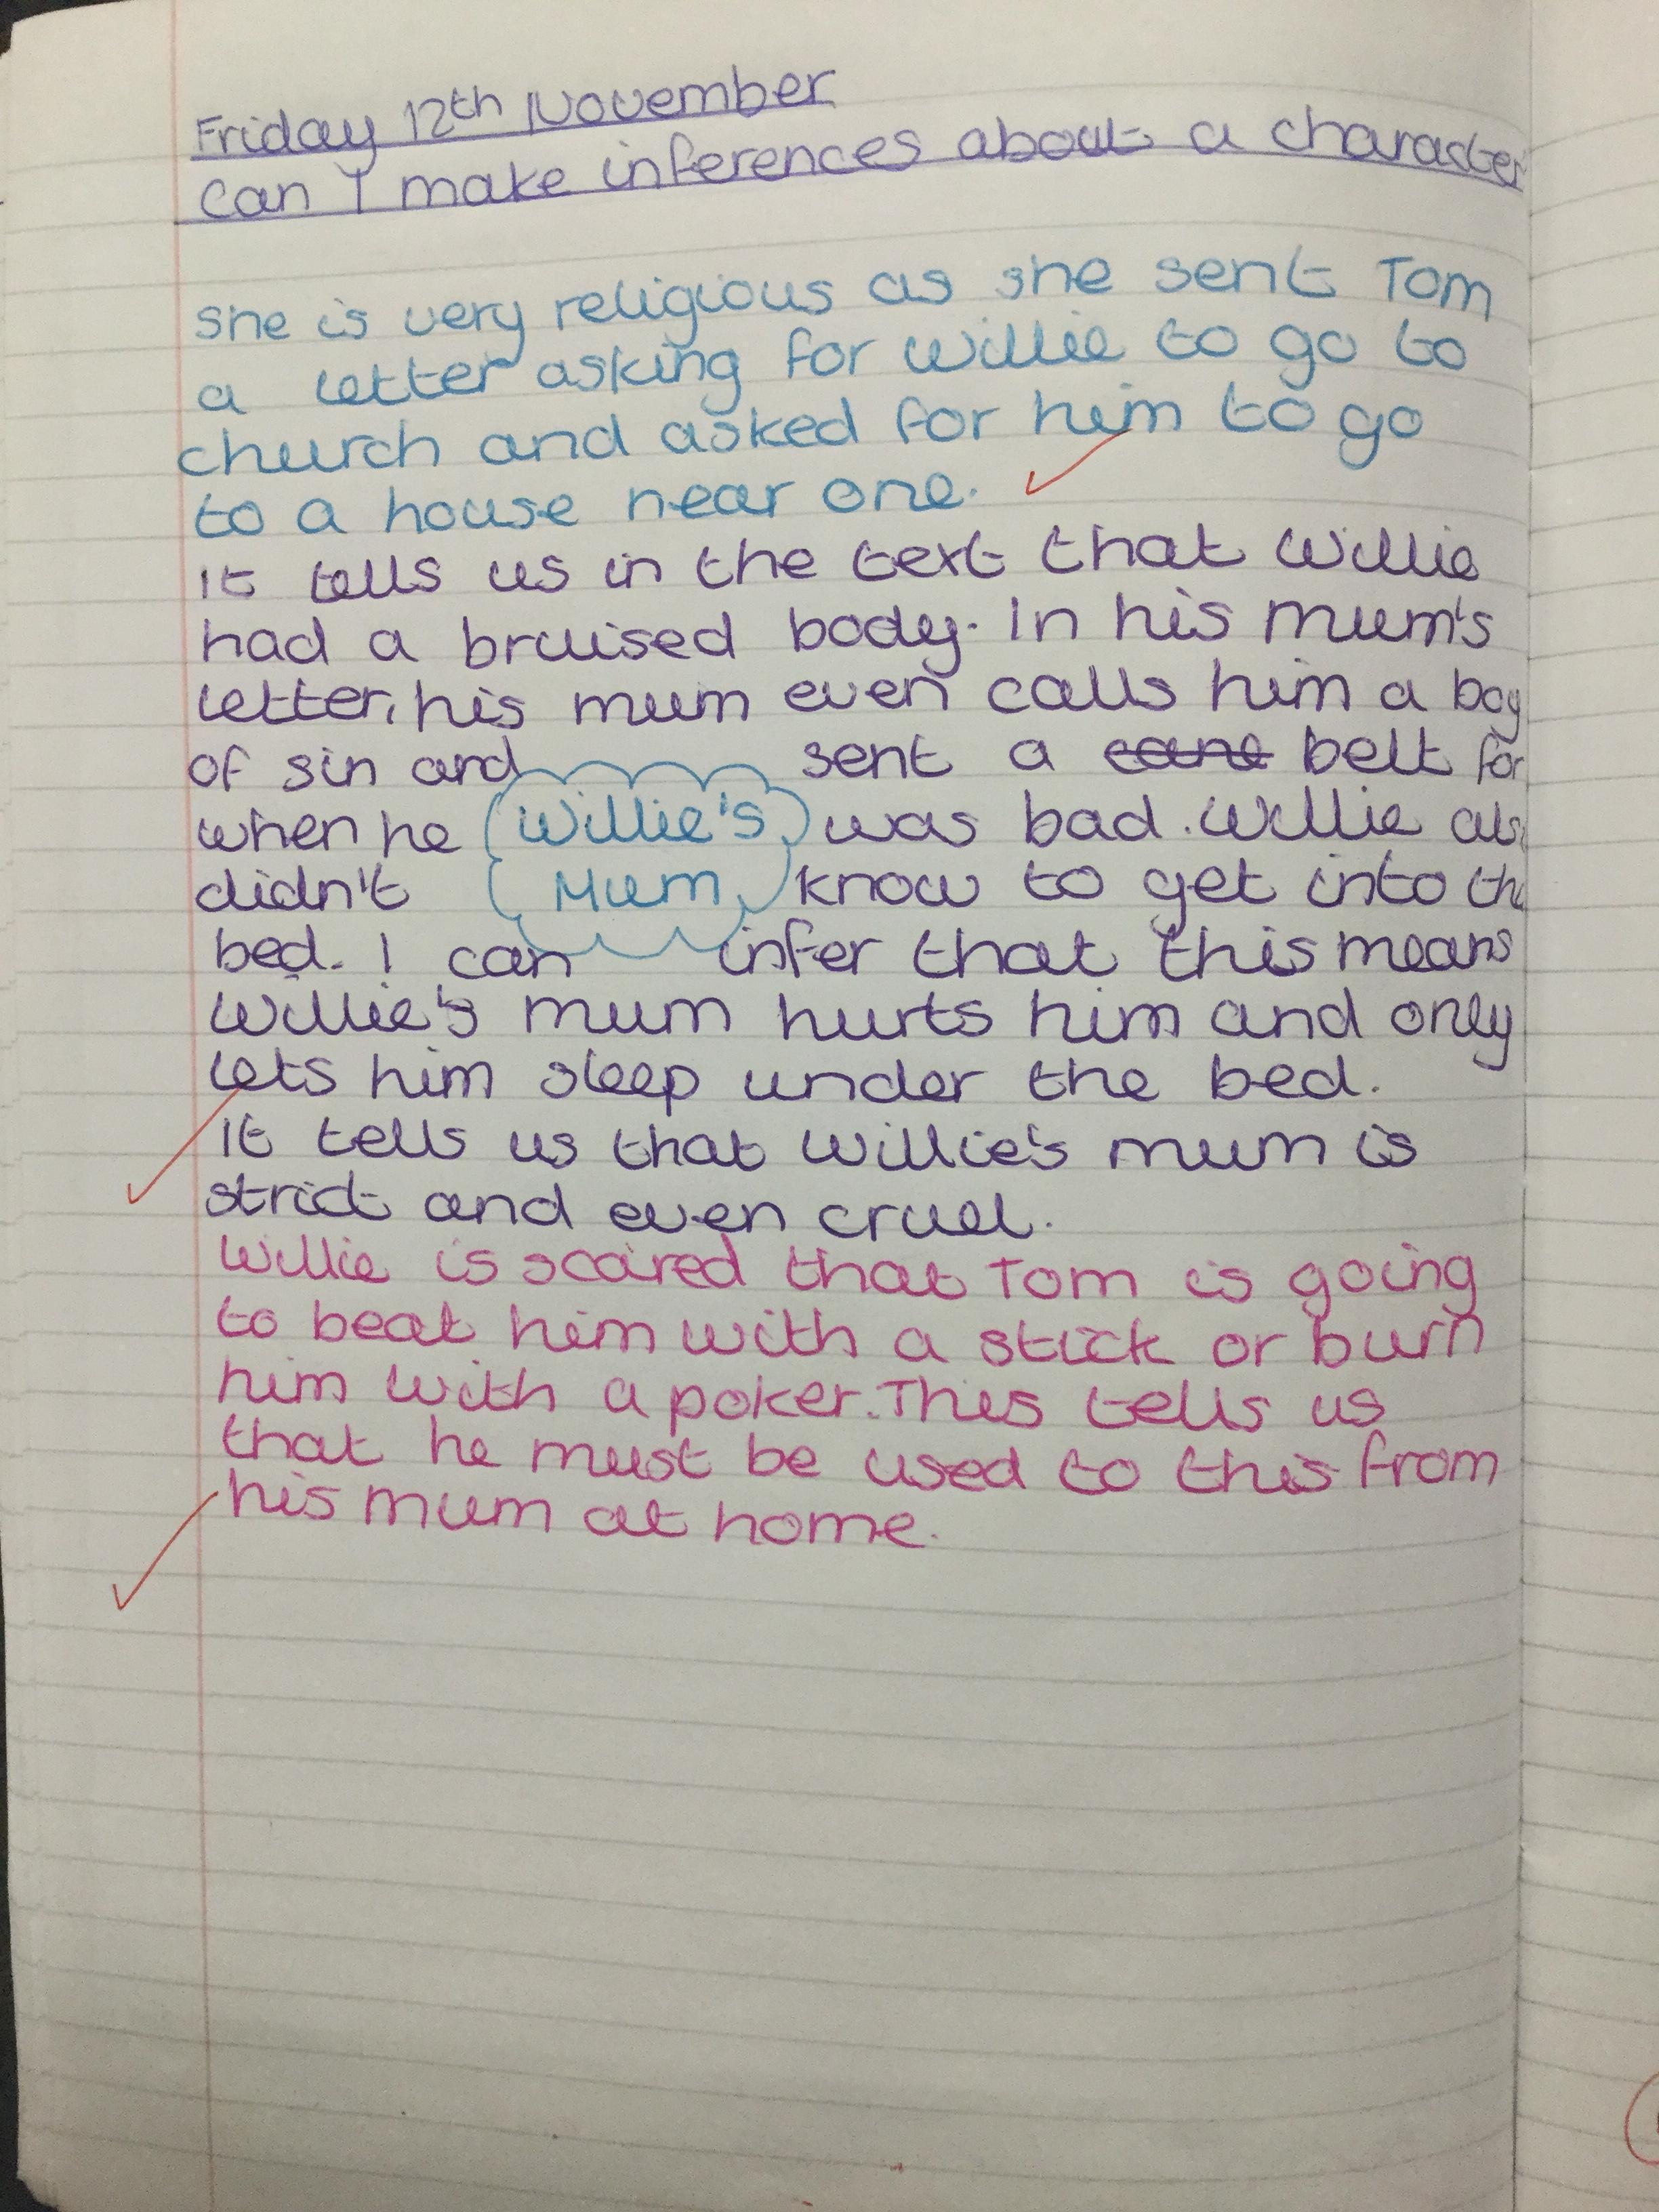 Friday 12th November
Can I make inferences about a character
She is very religious as she sent Tom
a letter asking for Willie to go to
church and asked for him to go
to a house near one.
It tells us in the text that Willie
had a bruised body. In his mum's
letter, his mum even calls him a boy
of sin and sent a cane belt for
when he was bad. Willie als
didn't know to get into the
bed. I can infer that this means
Willie's mum hurts him and only
lets him sleep under the bed.
It tells us that Willie's mum is
strict and even cruel.
Willie is scared that Tom is going
to beat him with a stick or burn
him with a poker. This tells us
that he must be used to this from
his mum at home.
Willie's
Mum